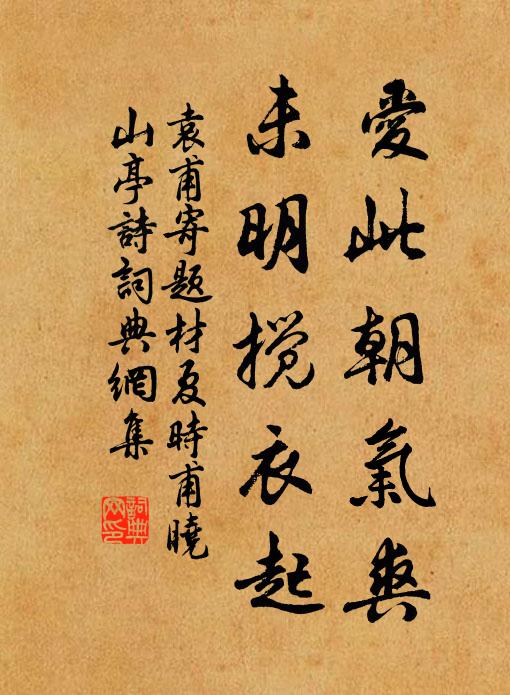 愛此朝氣爽
未明攬衣起
袁甫寄題材夏時甫曉
山亭詩詞典網集
詞典
网印